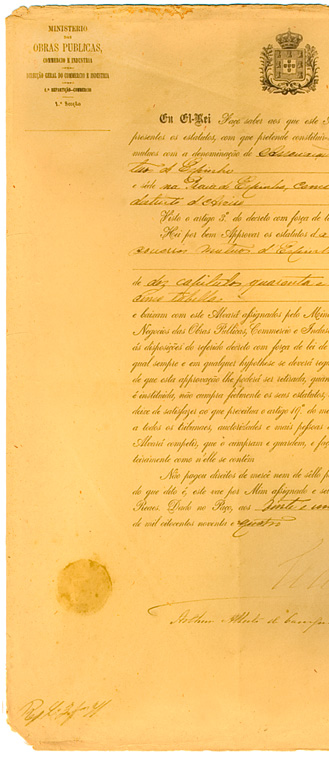 MINISTERIO
DAS
OBRAS PUBLICAS,
COMMERCIO E INDUSTRIA
DIRECÇÃO GERAL DO COMMERCIO E INDUSTRIA
1.ª REPARTIÇÃO-COMMERCIO
1.ª Secção
Eu El-Rei Faço saber aos que este
presentes os estatutos, com que pretende constituir-
mutuos com a denominação de
de Espinho
e séde na Praia d'Espinho, conc
districto d'Aveiro
Visto o artigo 3.º do decreto com força de
Hei por bem Approvar os estatutos d
soccorros mutuos d'Espinho
de dez capitulos quarenta e
uma tabella
e baixam com este Alvará assignados pelo Mini
Negocios das Obras Publicas, Commercio e Indus
ás disposições do referido decreto com força de lei de
qual sempre e em qualquer hypothese se deverá reg
de que esta approvação lhe poderá ser retirada, qua
é instituida, não cumpra fielmente os seus estatutos,
deixe de satisfazer ao que preceitua o artigo 19.º do me
a todos os tribunaes, auctoridades e mais pessoas a
Alvará competir, que o cumpram e guardem, e faç
teiramente como n'elle se contém
Não pagou direitos de mercê nem de sêllo p
do que dito é, este vae por Mim assignado e se
Reaes. Dado no Paço, aos vinte e um
de mil oitocentos noventa e quatro